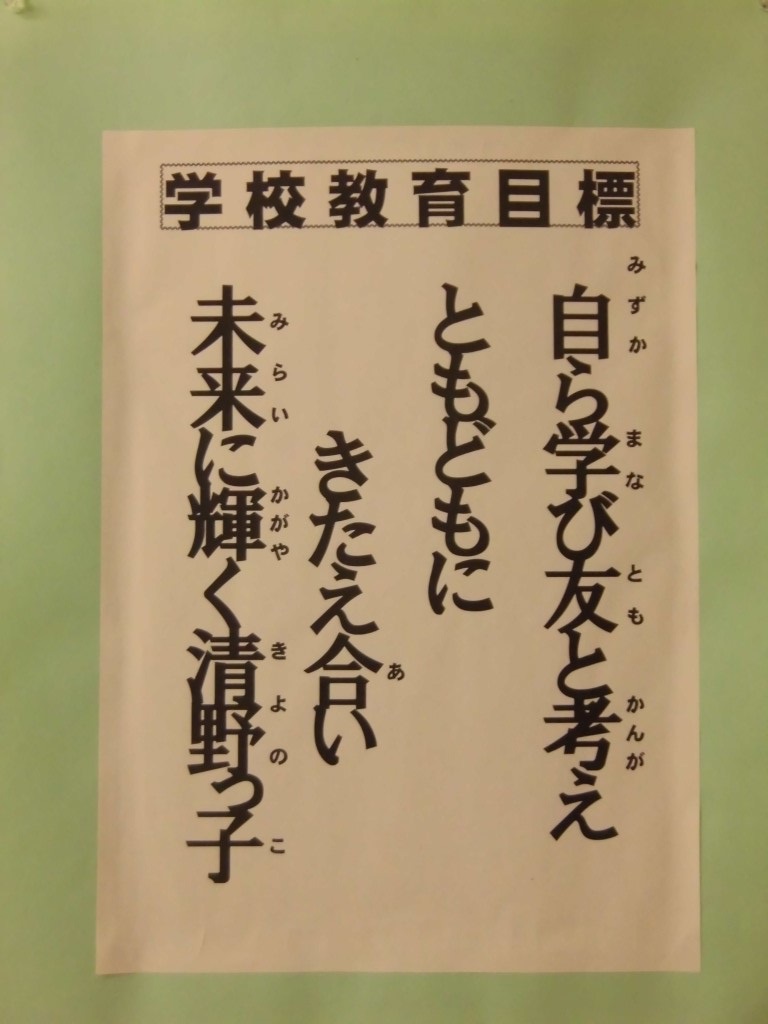 学校教育目標
自ら学び友と考え
みずか まな とも かんが
ともどもに
きたえ合い
あ
未来に輝く清野っ子
みらい かがや きよの こ